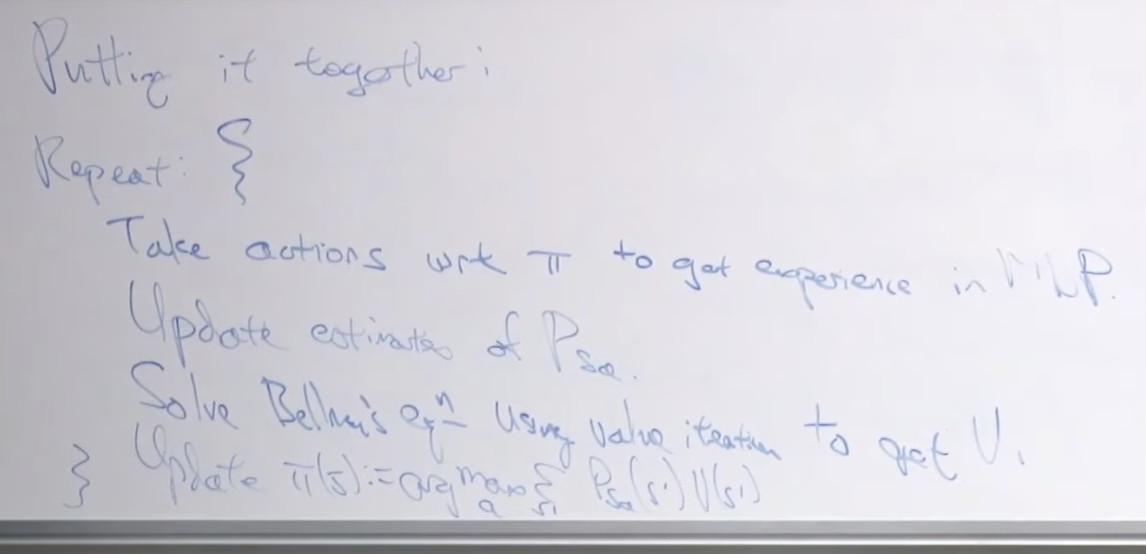 Putting it together:
Repeat: {
Take actions wrt π to get experience in MDP.
Update estimates of Psa.
Solve Bellman's eqn using value iteration to get V.
} Update π(s) := argmax_a Σ_s' Psa(s') V(s')